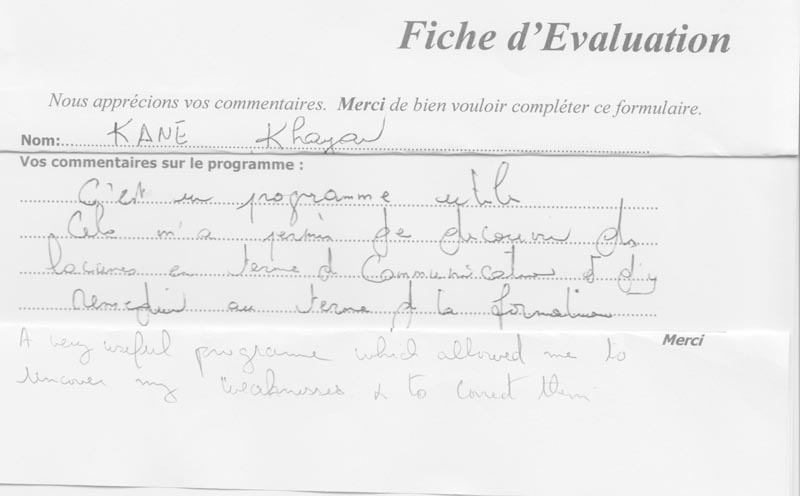 Fiche d'Evaluation
Nous apprécions vos commentaires. Merci de bien vouloir compléter ce formulaire.
Nom: KANE Khayar
Vos commentaires sur le programme :
C'est un programme utile
Cela m'a permis de découvrir des
lacunes en terme de Communication et d'y
remédier au terme de la formation
Merci
A very useful programme which allowed me to
uncover my weaknesses & to correct them